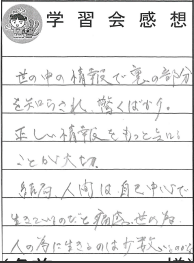 学習会感想
世の中の情報で裏の部分
を知らされ、驚くばかり。
正しい情報をもっと知る
ことが大切。
結局、人間は自己中心で
生きているのだと痛感。世の為、
人の為に生きるのは少数